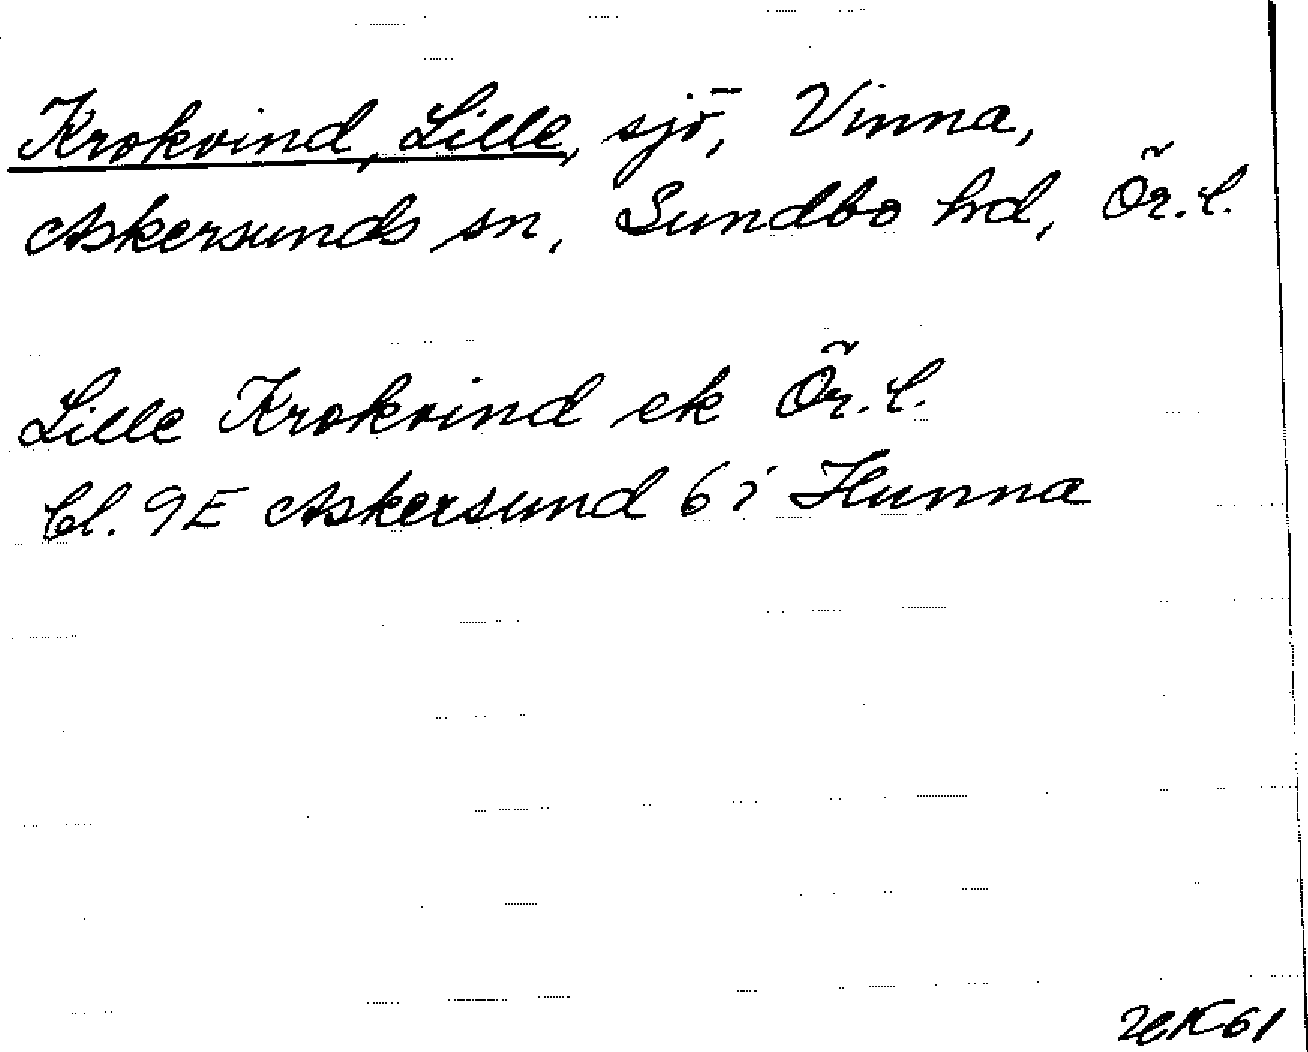 Krokvind, Lille, sjö, Vinna,
Askersunds sn, Sundbo hd, Ör.l.
Lille Krokvind ek Ör.l.
bl. 9E Askersund 6 i Hunna